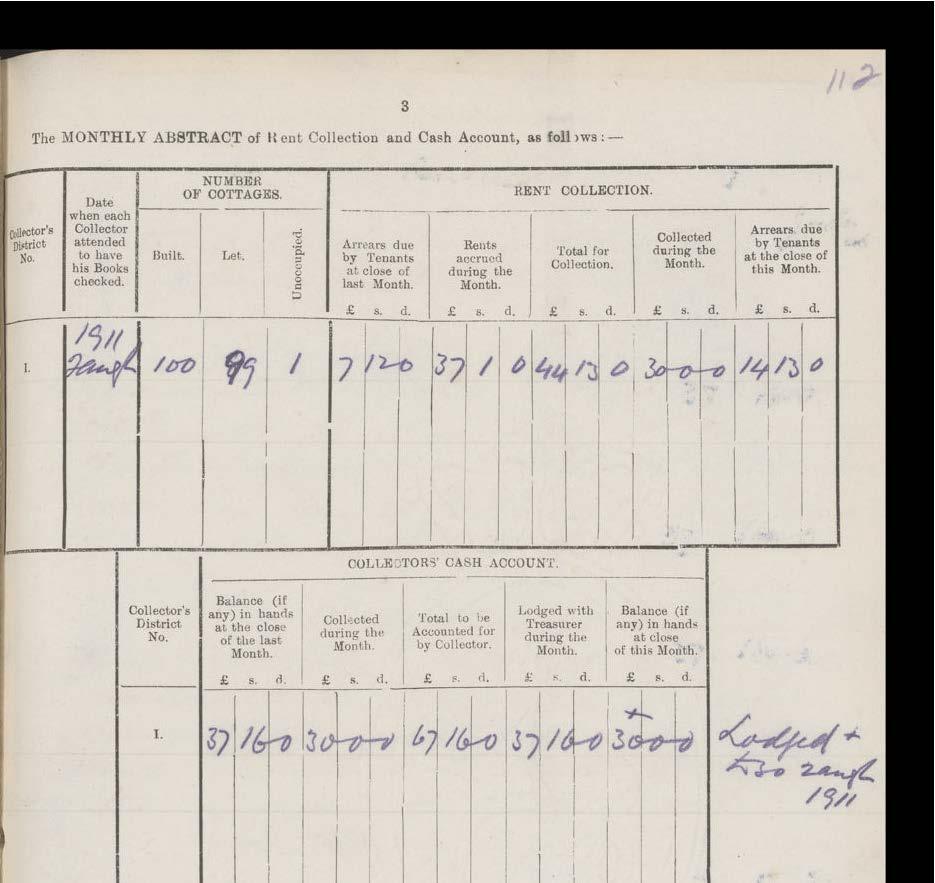 112
3
The MONTHLY ABSTRACT of Rent Collection and Cash Account, as follows:—
Collector's District No.
Date when each Collector attended to have his Books checked.
NUMBER OF COTTAGES.
Built.
Let.
Unoccupied.
RENT COLLECTION.
Arrears due by Tenants at close of last Month.
Rents accrued during the Month.
Total for Collection.
Collected during the Month.
Arrears due by Tenants at the close of this Month.
£ s. d. £ s. d. £ s. d. £ s. d. £ s. d.
1911
I. 100 99 1 7 12 0 37 1 0 44 13 0 30 0 0 14 13 0
COLLECTORS' CASH ACCOUNT.
Collector's District No.
Balance (if any) in hands at the close of the last Month.
Collected during the Month.
Total to be Accounted for by Collector.
Lodged with Treasurer during the Month.
Balance (if any) in hands at close of this Month.
£ s. d. £ s. d. £ s. d. £ s. d. £ s. d.
I. 37 16 0 30 0 0 67 16 0 37 16 0 + 30 0 0
Lodged +
£30
1911